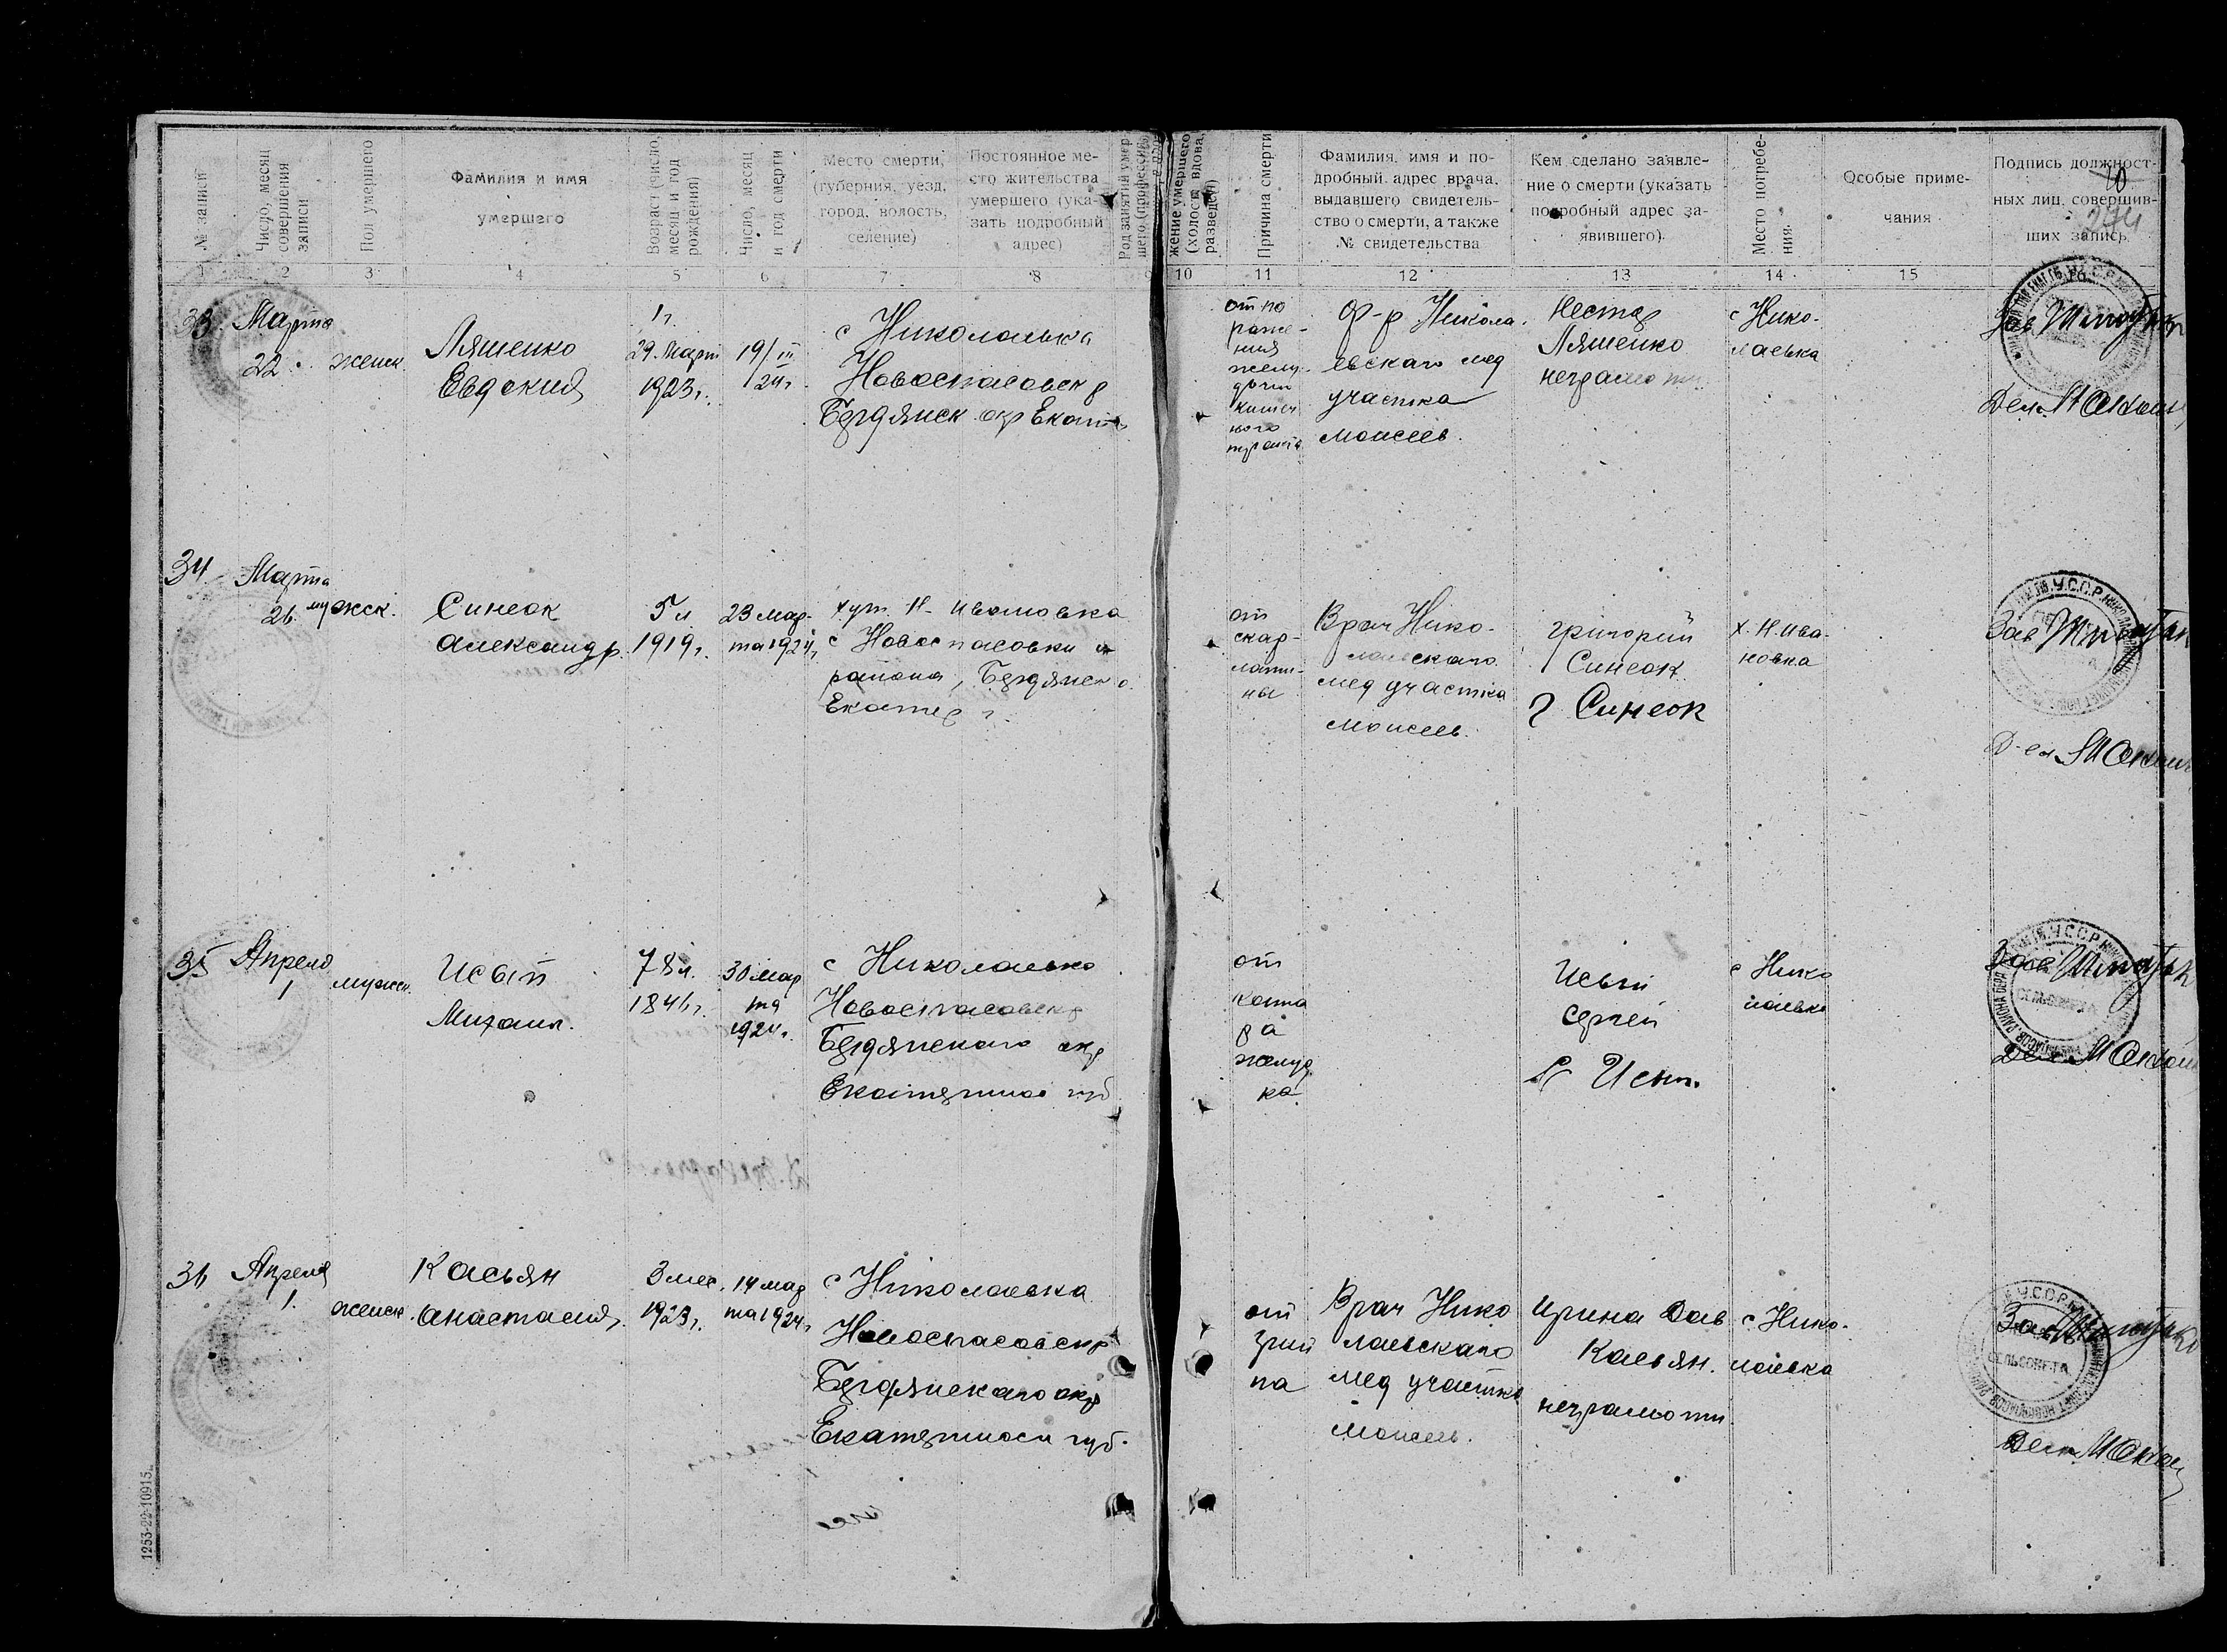 № записи
Число, месяц совершения записи
Пол умершего
Фамилия и имя
умершего
Возраст (число, месяц и год рождения)
Число, месяц и год смерти
Место смерти,
(губерния, уезд,
город, волость,
селение)
Постоянное ме-
сто жительства
умершего (ука-
зать подробный
адрес)
Род занятий умер
шего (профессия)
жение умершего
(холост, вдова,
разведен)
Причина смерти
Фамилия, имя и по-
дробный адрес врача,
выдавшего свидетель-
ство о смерти, а также
№ свидетельства
Кем сделано заявле-
ние о смерти (указать
подробный адрес за-
явившего).
Место погребе-
ния.
Особые приме-
чания
Подпись должност-
ных лиц, совершив-
ших запись
274
1 2 3 4 5 6 7 8 9 10 11 12 13 14 15
33
Марта
22
женск
Ляшенко
Евдокия
1 г.
29. Март
1923 г.
19/III
24 г.
с Николаевка
Новоспасовск р
Бердянск окр Екат
от по
раже-
ния
желу-
дочно
кишеч
ного
тракта
Ф-р Никола-
евского мед
участка
Моисеев.
Нестор
Ляшенко
неграмотн.
с Нико-
лаевка
Зав
Дел
34
Марта
26
мужск.
Синеок
Александр.
5 л
1919 г.
23 мар-
та 1924 г.
хут. Н-Ивановка
с Новоспасовки
района, Бердянск о.
Екатер г.
от
скар-
лати-
ны
Врач Нико-
лаевского
мед участка
Моисеев.
Григорий
Синеок.
Г Синеок
х. Н. Ива-
новка
Зав
Дел
35
Апреля
1
мужск.
Исып
Михаил.
78 л.
1846 г.
30 мар
та
1924 г.
с Николаевка
Новоспасовск р
Бердянского окр
Екатеринос губ
от
ката
ра
желуд
ка.
Исып
Сергей
С Исып.
с Нико
лаевка
Зав
СЕЛЬСОВЕТА
Дел
36
Апреля
1.
женск.
Касьян
Анастасия.
3 мес.
1923 г.
14 мар
та 1924 г.
с Николаевка
Новоспасовск р
Бердянского окр
Екатеринос губ.
от
грип
па
Врач Нико
лаевского
мед участка
Моисеев.
Ирина Дав
Касьян.
неграмотн
с Нико-
лаевка
Зав
СЕЛЬСОВЕТА
Дел
1253-22-10915